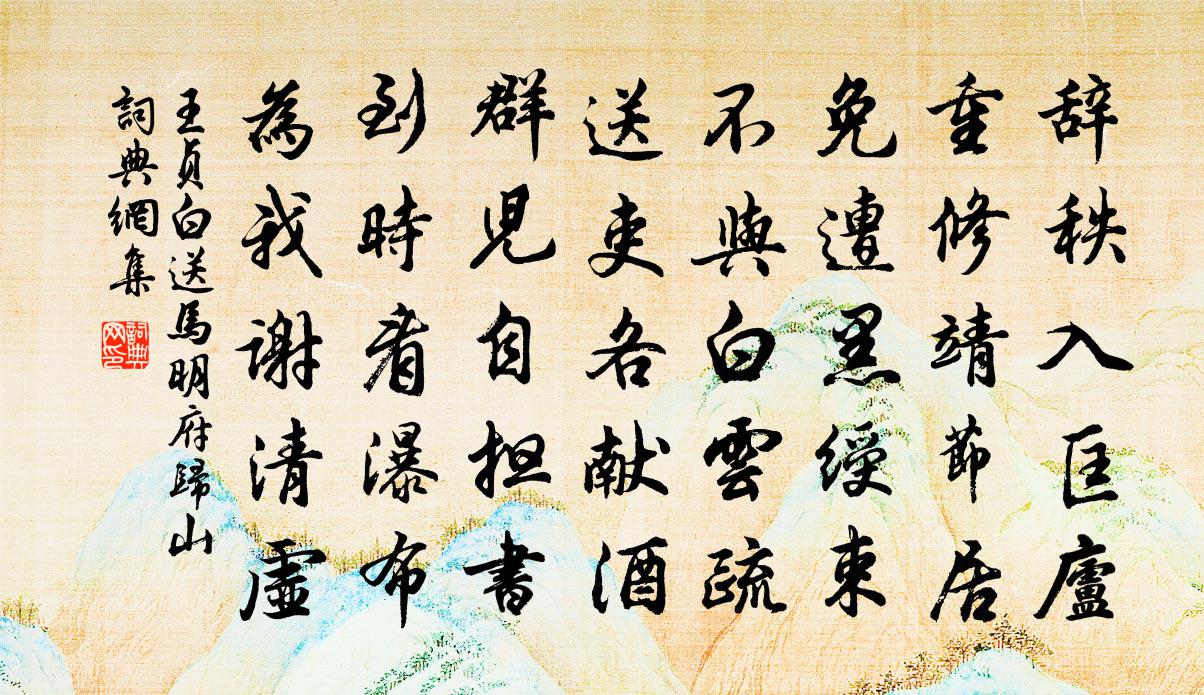 辞秩入匡廬
重修靖節居
免遭黑綬束
不與白雲疏
送吏各献酒
群児自担書
到時看瀑布
為我謝清虛
王貞白送馬明府歸山
詞典網集
詞典網印